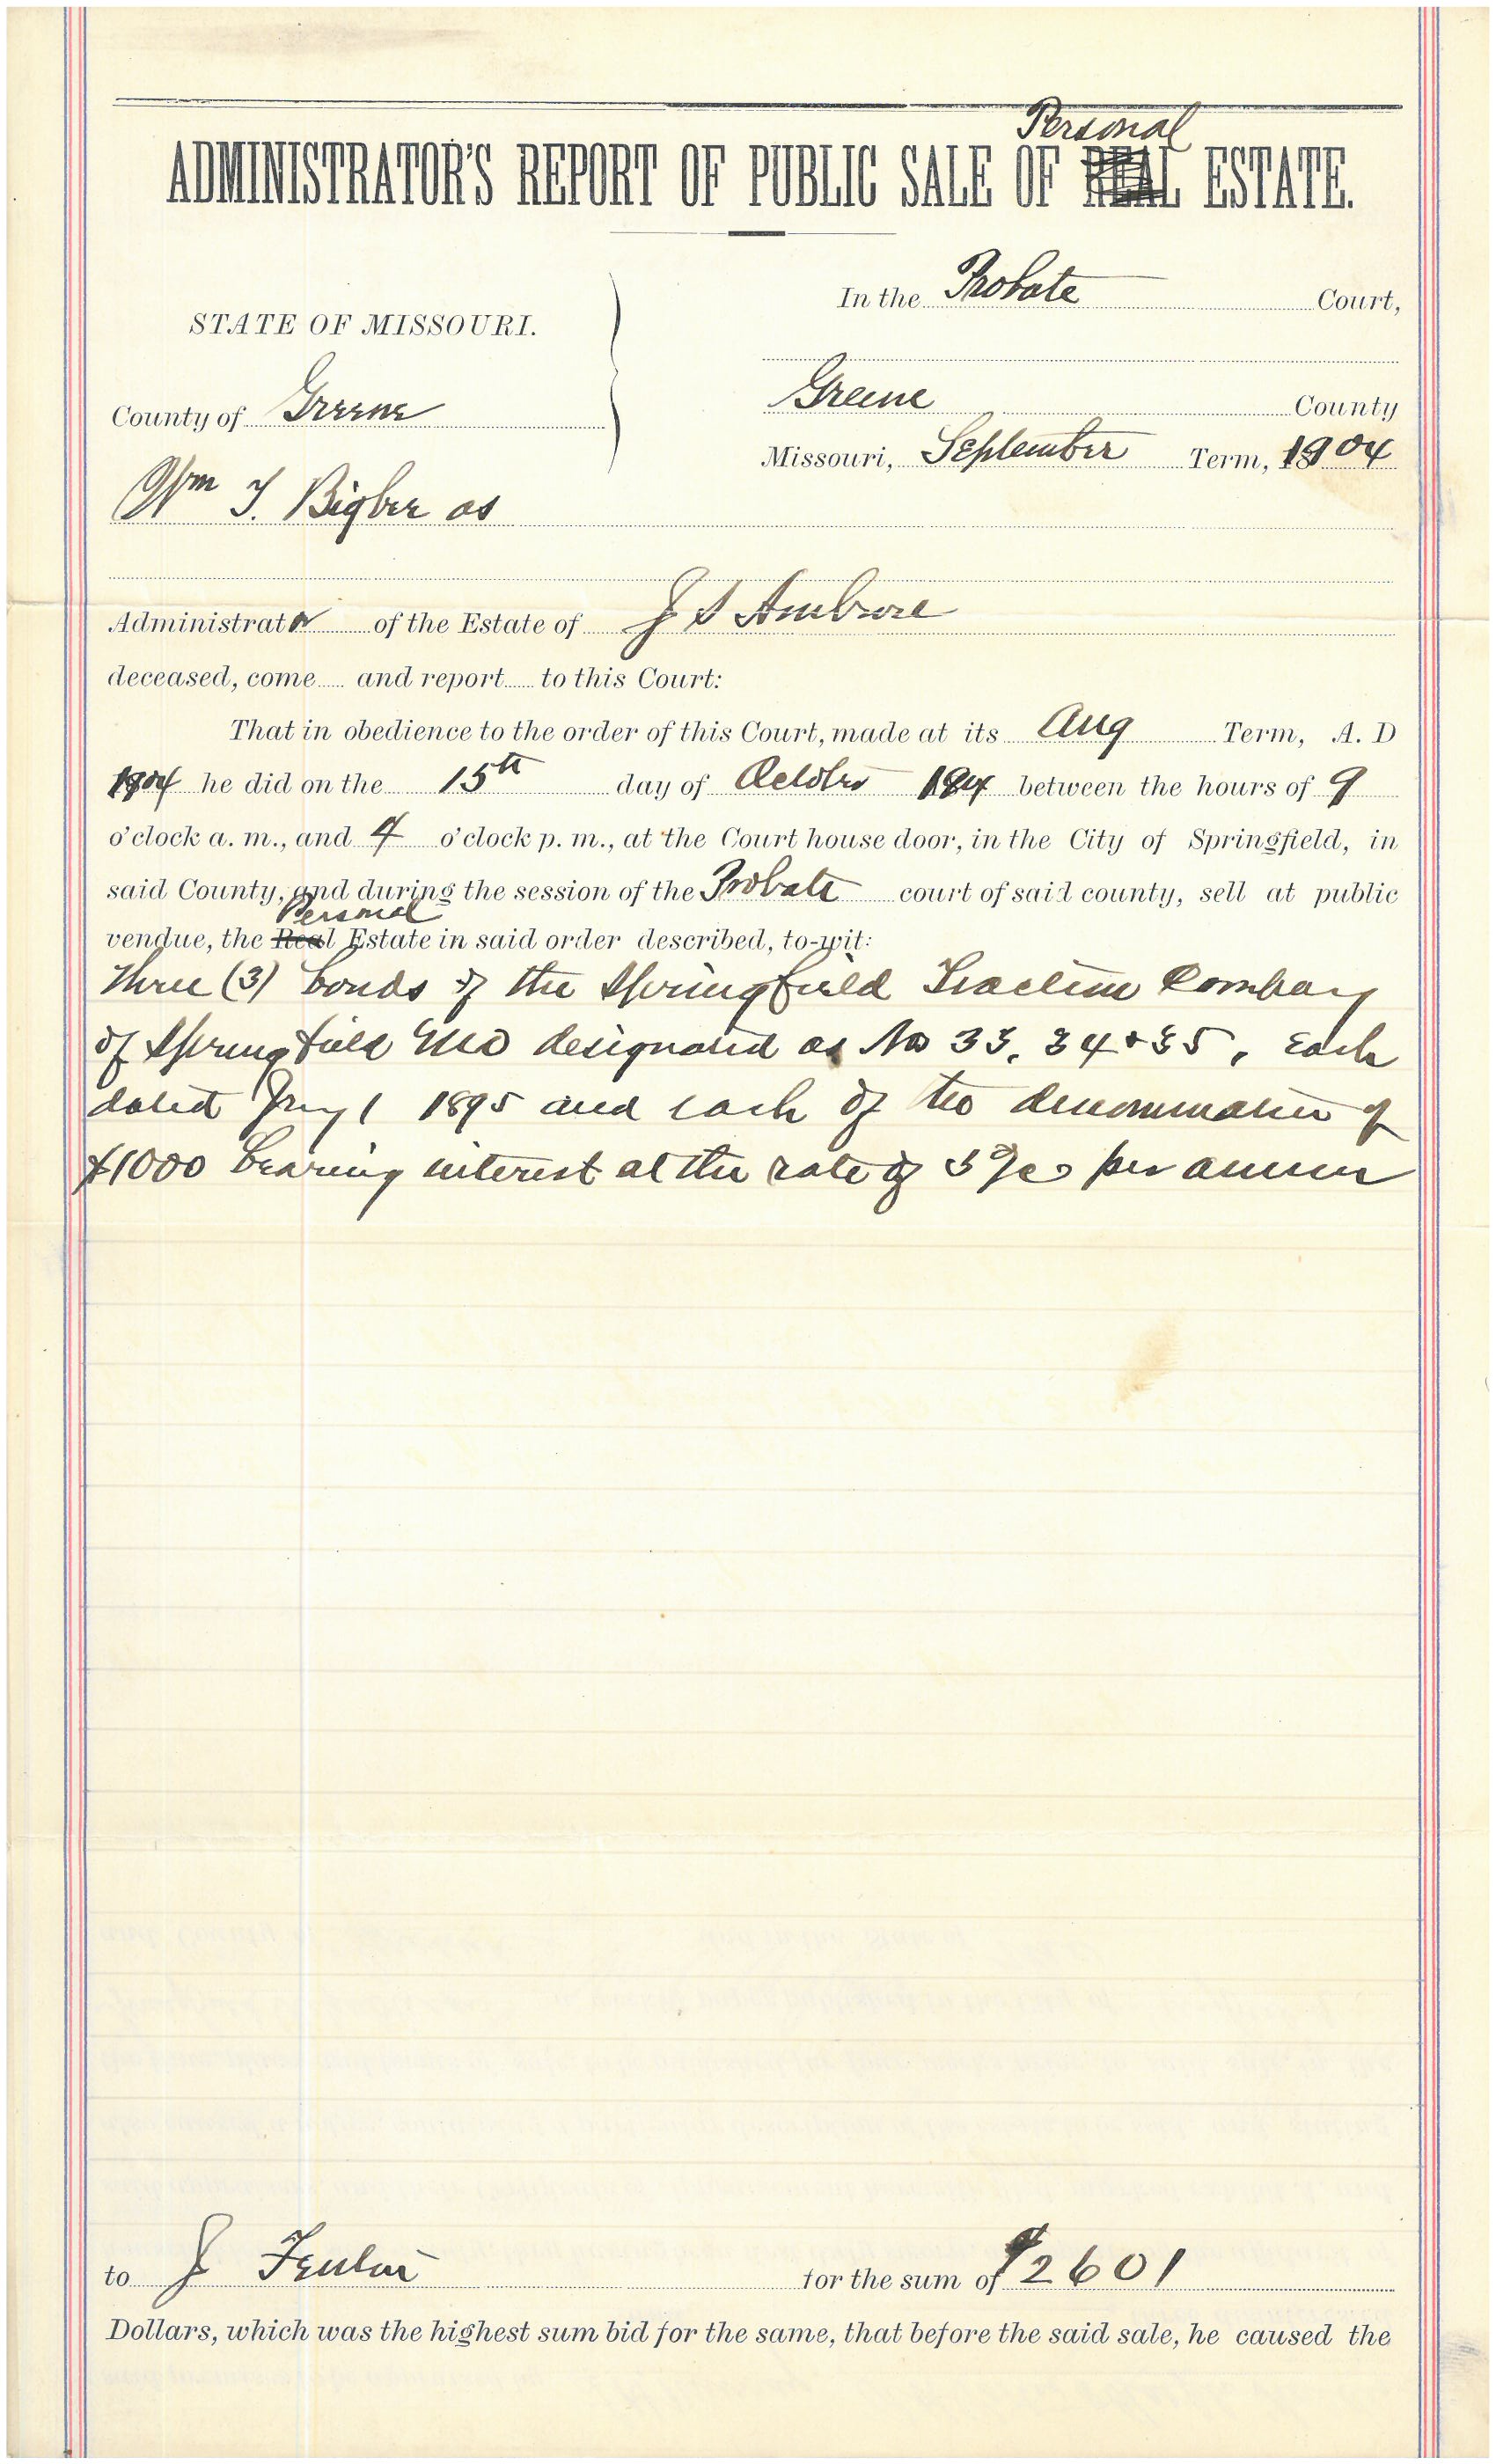 Personal
ADMINISTRATOR'S REPORT OF PUBLIC SALE OF REAL ESTATE.
In the Probate Court,
STATE OF MISSOURI.
County of Greene
Greene County
Missouri, September Term, 1904
Wm T. Bigbee as
Administrator of the Estate of J S Ambrose
deceased, come and report to this Court:
That in obedience to the order of this Court, made at its Aug Term, A. D
1904 he did on the 15th day of October 1904 between the hours of 9
o'clock a. m., and 4 o'clock p. m., at the Court house door, in the City of Springfield, in
said County, and during the session of the Probate court of said county, sell at public
Personal
vendue, the Real Estate in said order described, to-wit:
Three (3) bonds of the Springfield Traction Company
of Springfield Mo designated as No 33, 34 & 35, Each
dated 1 1895 and each of the denomination of
$1000 bearing interest at the rate of 5% per annum
to J for the sum of $2601
Dollars, which was the highest sum bid for the same, that before the said sale, he caused the